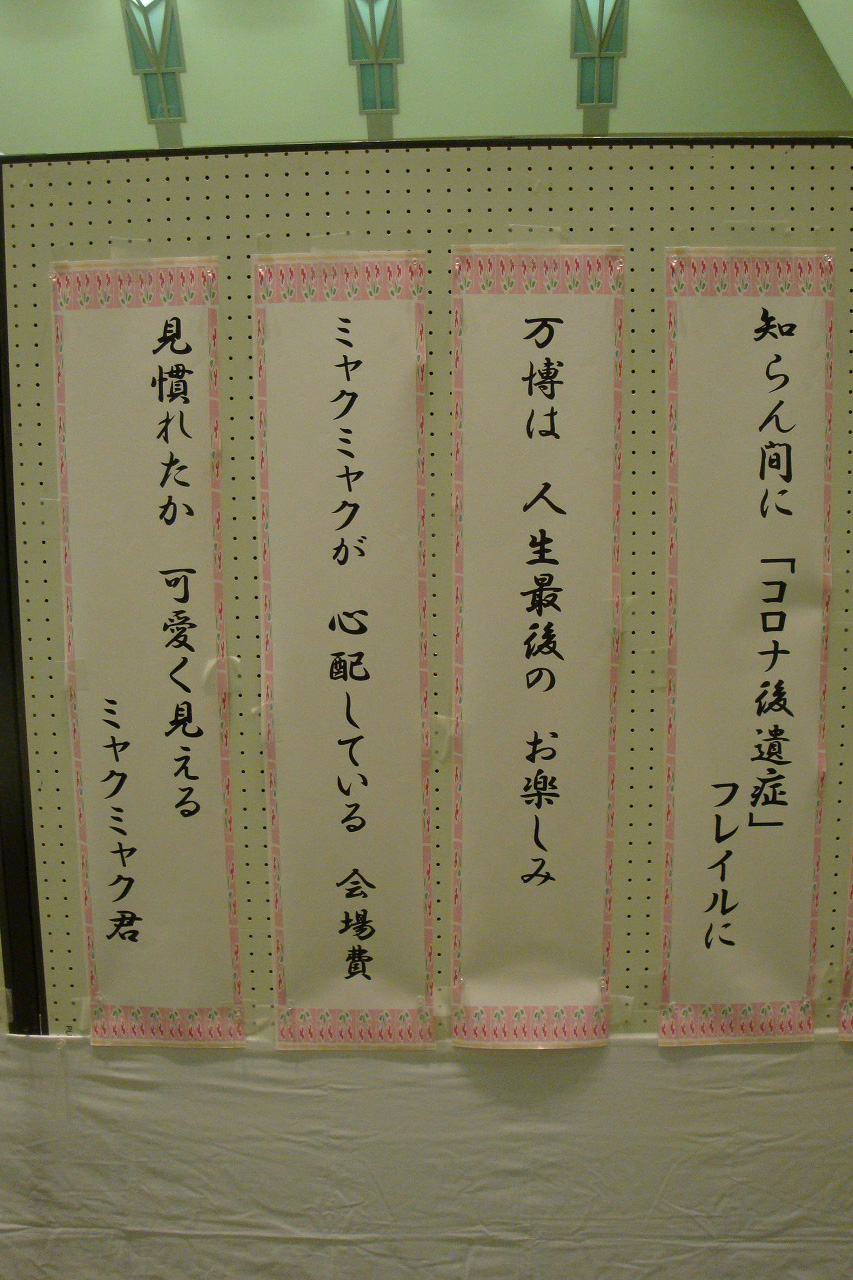 知らん間に　「コロナ後遺症」
フレイルに
万博は　人生最後の　お楽しみ
ミャクミャクが　心配している　会場費
見慣れたか　可愛く見える
ミャクミャク君